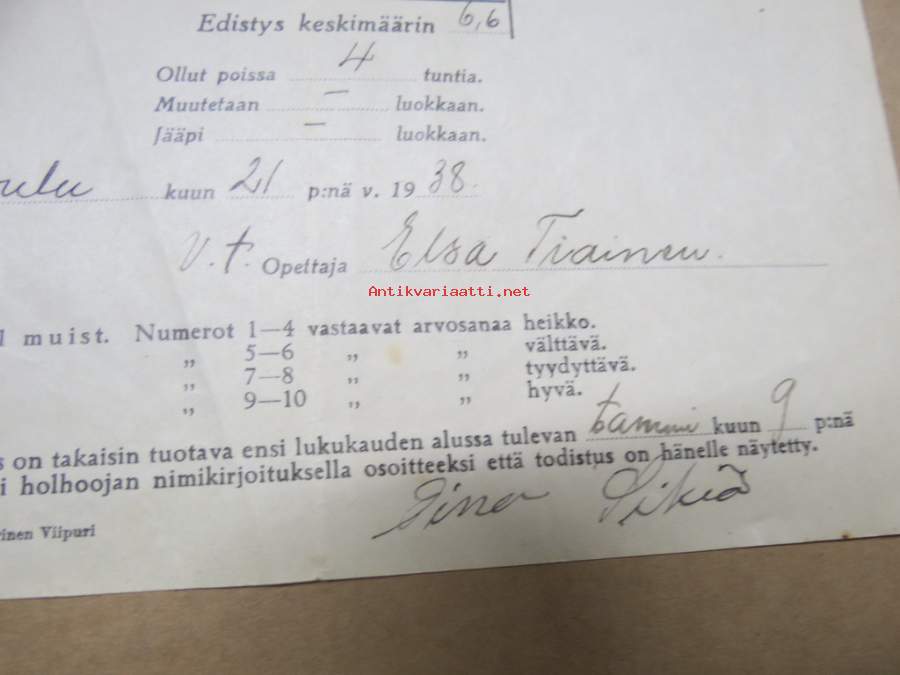 Edistys keskimäärin 6,6
Ollut poissa 4 tuntia.
Muutetaan — luokkaan.
Jääpi — luokkaan.
kuun 21 p:nä v. 1938.
V.t. Opettaja Elsa Tiainen.
Antikvariaatti.net
muist. Numerot 1—4 vastaavat arvosanaa heikko.
„ 5—6 „ „ välttävä.
„ 7—8 „ „ tyydyttävä.
„ 9—10 „ „ hyvä.
on takaisin tuotava ensi lukukauden alussa tulevan tammi kuun 9 p:nä
i holhoojan nimikirjoituksella osoitteeksi että todistus on hänelle näytetty.
rinen Viipuri